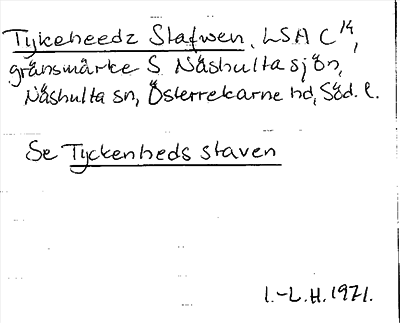 Tykeheedz Stafwen, LSA C¹⁴,
gränsmärke S Näshultasjön,
Näshulta sn, Österrekarne hd, Söd. l.
Se Tyckenheds staven
I.-L.H. 1971.